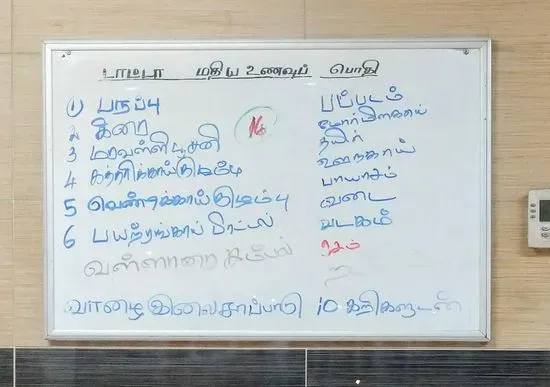 டாமடா மதிய உணவுப் பொதி
1) பருப்பு
2 கீரை
3 மரவள்ளி பூசனி
4 கத்தரிக்காய்
5 வெண்டிக்காய் குழம்பு
6 பயற்றங்காய் பிரட்டல்
வல்லாரை சம்பல்
பப்படம்
மோர்மிளகாய்
தயிர்
ஊறுகாய்
பாயாசம்
வடை
வடகம்
ரசம்
வாழை இலை சாப்பாடு 10 கறிகளுடன்